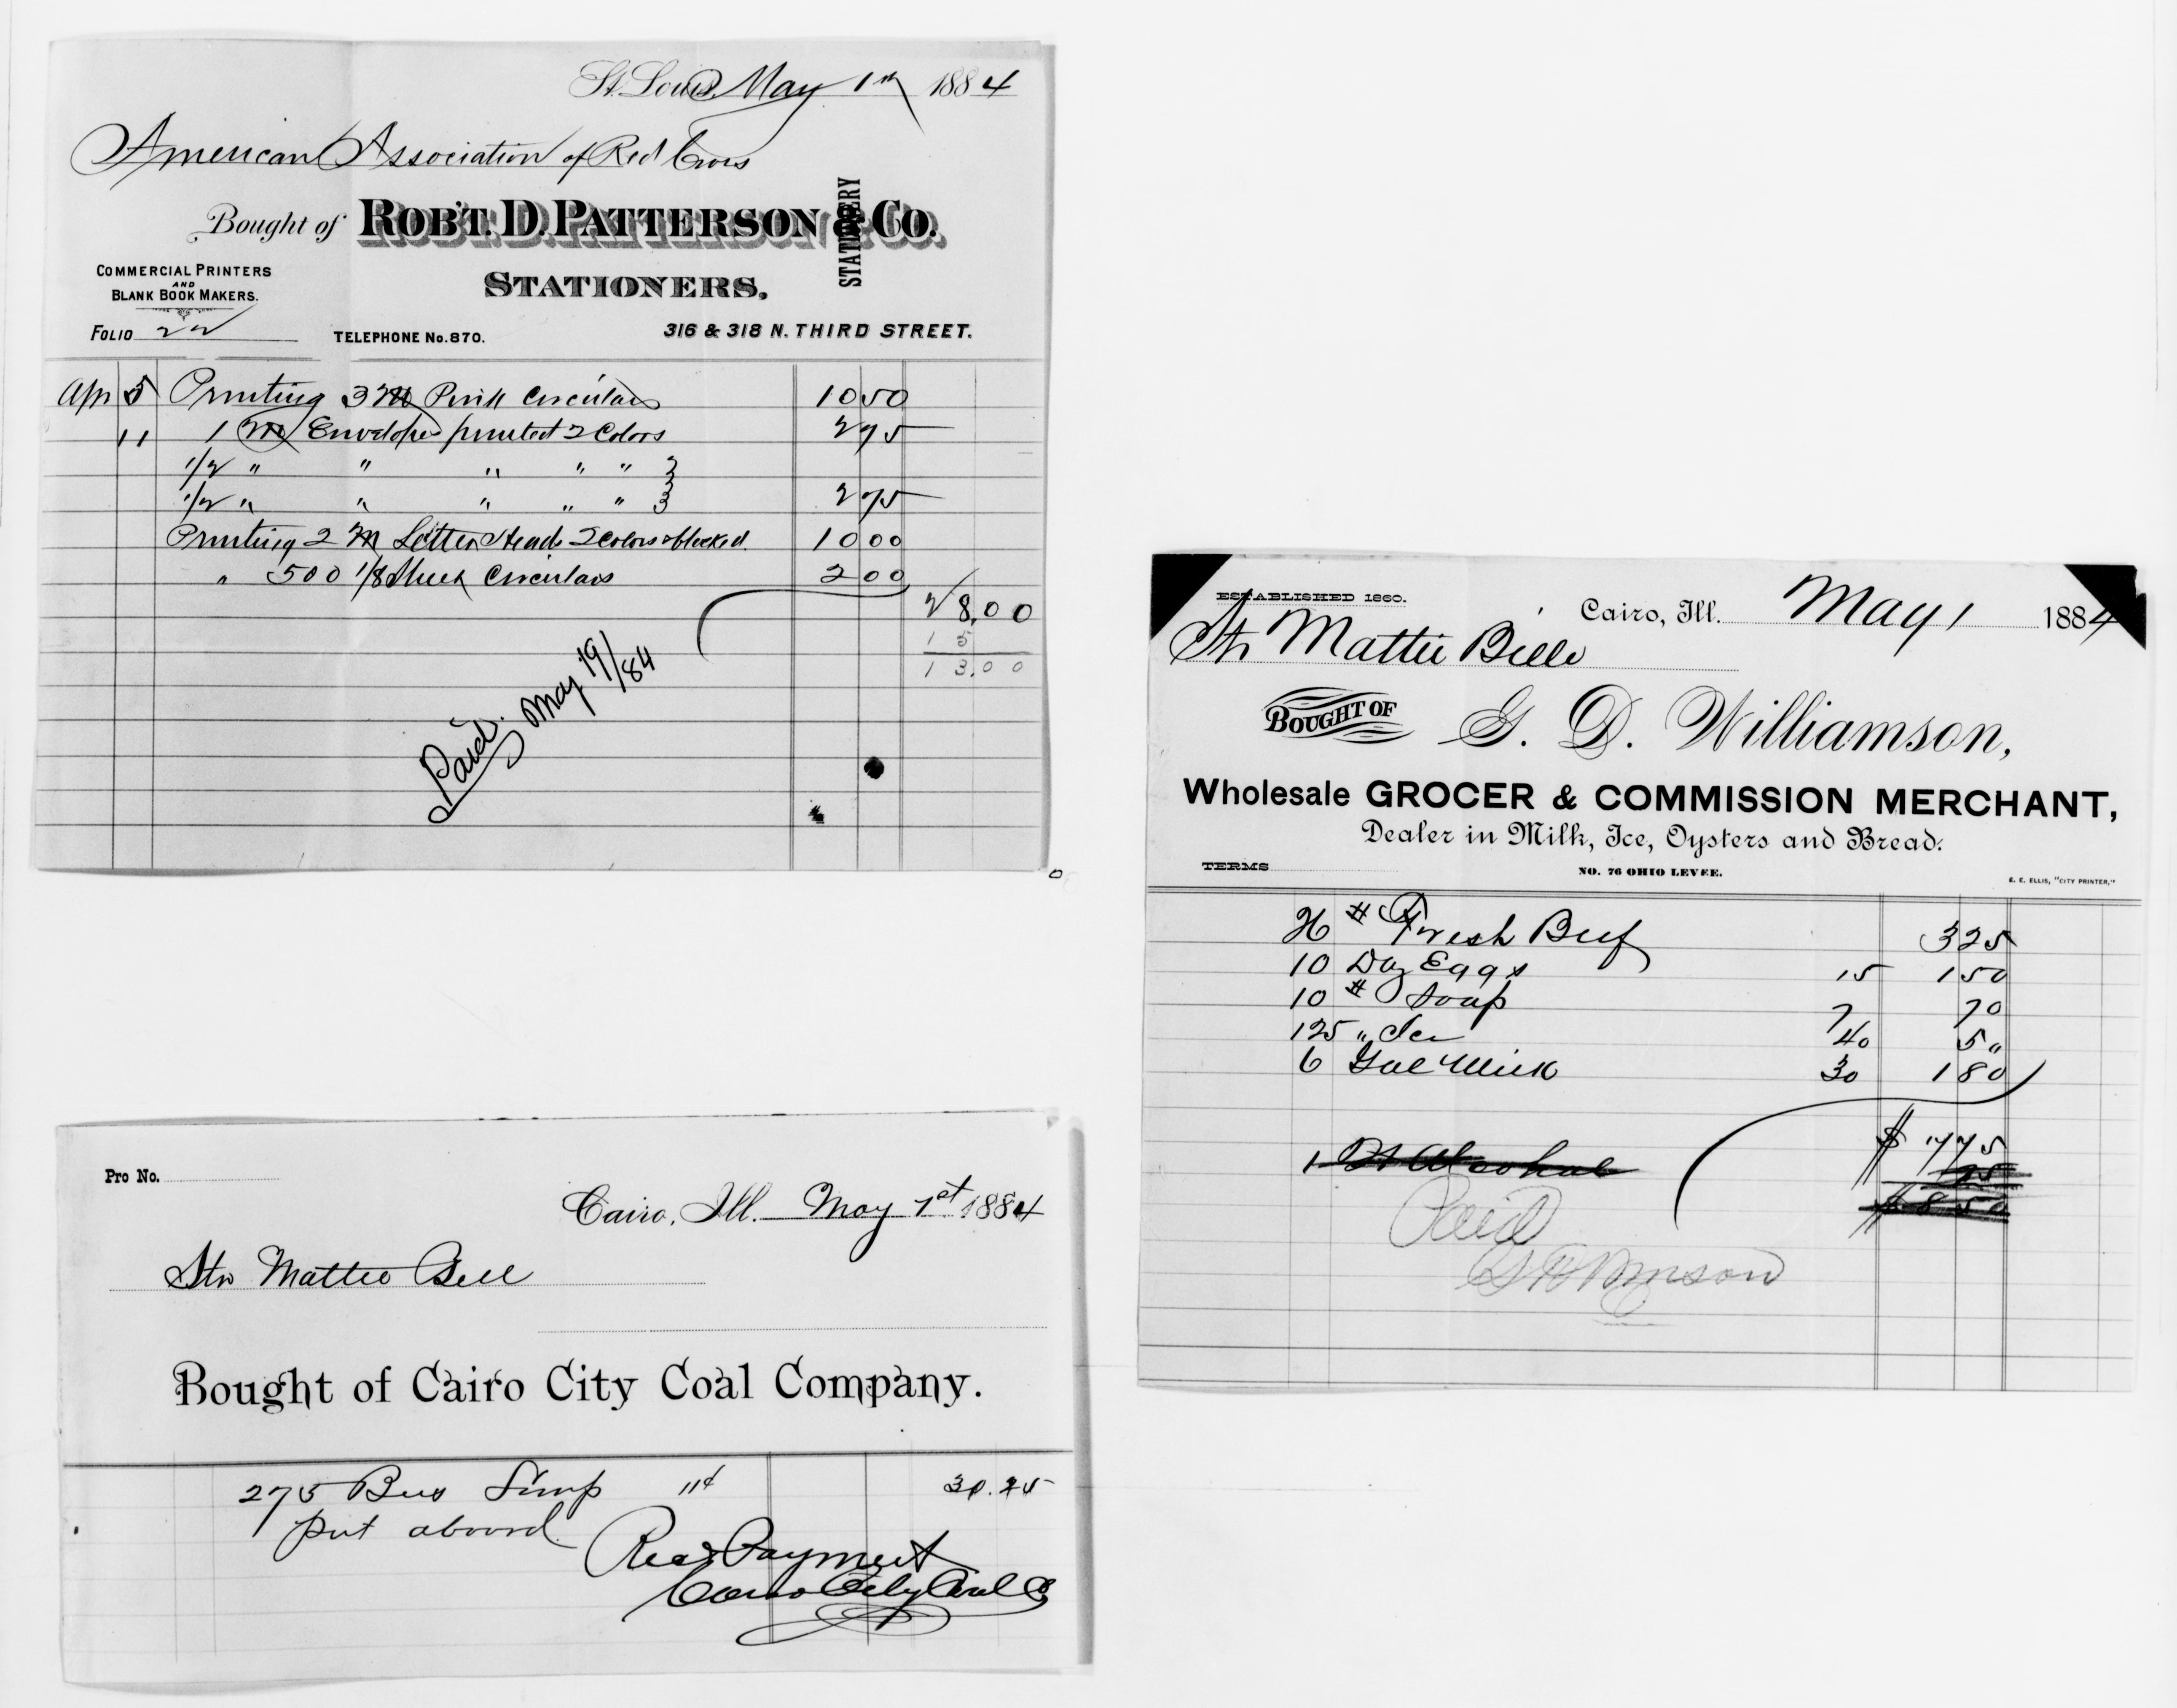 St. Louis, May 1st 1884
American Association of Red Cross
Bought of ROB'T. D. PATTERSON & CO.
STATIONERY
STATIONERS,
COMMERCIAL PRINTERS
AND
BLANK BOOK MAKERS.
FOLIO 22
TELEPHONE No. 870.
316 & 318 N. THIRD STREET.
Apr 5 Printing 3 M Pink Circulars 10 50
11 1 M Envelopes printed 2 Colors 2 75
1/2 " " " " " }
1/2 " " " " " } 2 75
Printing 2 M Letter Heads 2 Colors & blocked. 10 00
" 500 1/8 Sheet Circulars 2 00
28,00
15
13.00
Paid. May 19/84
Pro No.
Cairo, Ill. May 1st 1884
Str Mattie Bell
Bought of Cairo City Coal Company.
275 Bus Lump 11¢ 30.25
put aboord
Rec'd Payment
Cairo City Coal Co
ESTABLISHED 1860.
Cairo, Ill. May 1 1884
Str Mattie Belle
BOUGHT OF G. D. Williamson,
Wholesale GROCER & COMMISSION MERCHANT,
Dealer in Milk, Ice, Oysters and Bread.
TERMS
NO. 76 OHIO LEVEE.
E. E. ELLIS, "CITY PRINTER,"
26 # Fresh Beef 3 25
10 Doz Eggs 15 1 50
10 # Soap 7 70
125 " Ice 40 50
6 Gal Milk 30 1 80
$ 7 75
1 Qt Alcohol 75
$ 8 50
Paid